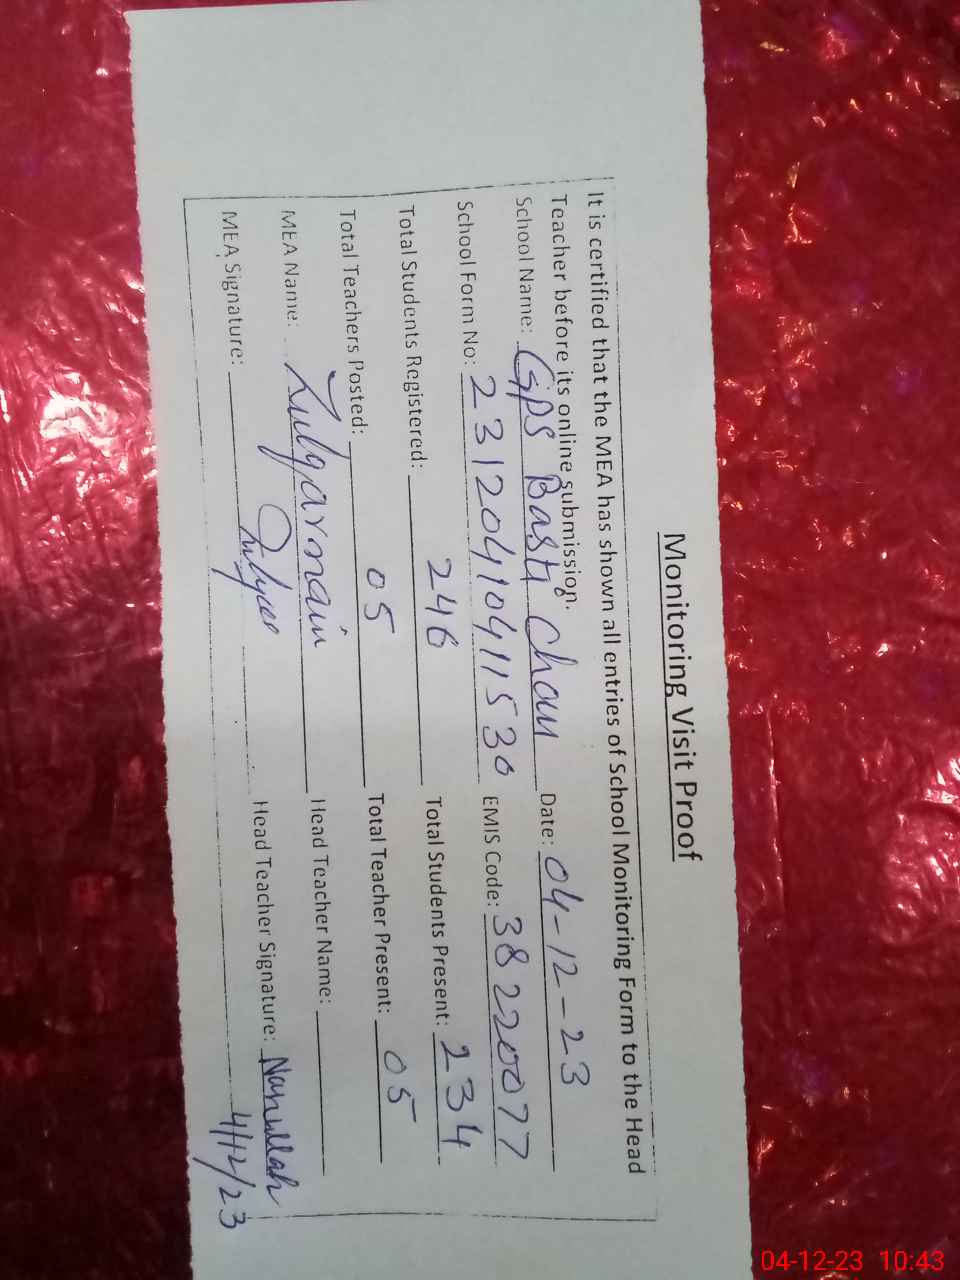 Monitoring Visit Proof
It is certified that the MEA has shown all entries of School Monitoring Form to the Head
Teacher before its online submission.
School Name: GPS Basti Chan Date: 04-12-23
School Form No: 23120410411530 EMIS Code: 38220077
Total Students Registered: 246 Total Students Present: 234
Total Teachers Posted: 05 Total Teacher Present: 05
MEA Name: Zulqarnain Head Teacher Name:
MEA Signature: Head Teacher Signature:
4/12/23
04-12-23 10:43